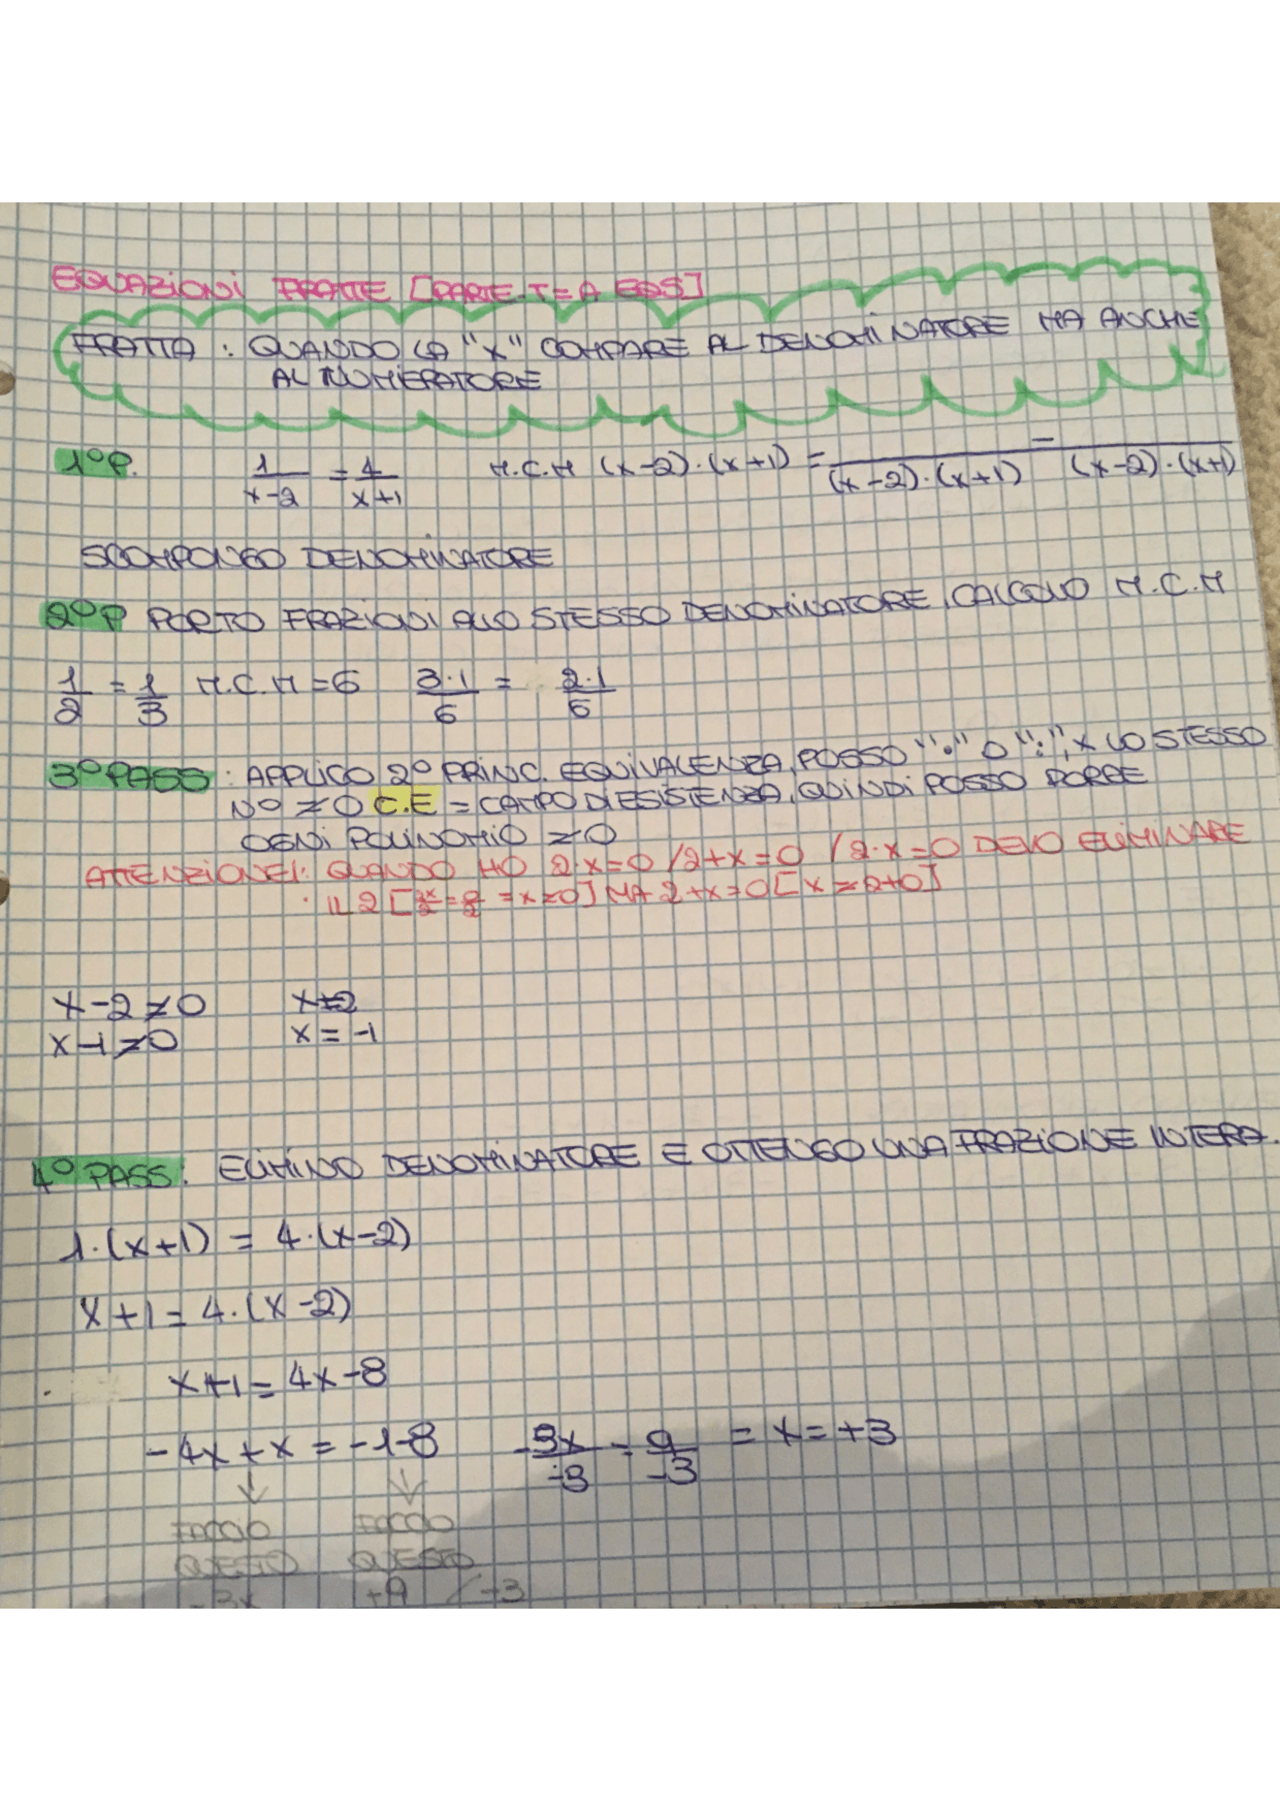 EQUAZIONI FRATTE [PARTE T=A EQS]
FRATTA: QUANDO LA "X" COMPARE AL DENOMINATORE MA ANCHE
AL NUMERATORE
1° P. 1/(x-2) = 4/(x+1) M.C.M (x-2)·(x+1) = /(x-2)·(x+1) - /(x-2)·(x+1)
SCOMPONGO DENOMINATORE
2° P PORTO FRAZIONI ALLO STESSO DENOMINATORE, CALCOLO M.C.M
1/2 = 1/3 M.C.M = 6 3·1/6 = 2·1/6
3° PASS: APPLICO 2° PRINC. EQUIVALENZA, POSSO "·" O ":", X LO STESSO
N° ≠ 0 C.E = CAMPO DI ESISTENZA, QUINDI POSSO PORRE
OGNI POLINOMIO ≠ 0
ATTENZIONE!: QUANDO HO 2·x=0 / 2+x=0 / 2·x=0 DEVO ELIMINARE
IL 2 [2x/2 = 0/2 = x≠0] MA 2+x=0 [x≠2+0]
x-2≠0 x≠2
x-1≠0 x=-1
4° PASS: ELIMINO DENOMINATORE E OTTENGO UNA FRAZIONE INTERA.
1·(x+1) = 4·(x-2)
x+1 = 4·(x-2)
x+1 = 4x-8
-4x+x = -1-8 -3x/-3 = 9/-3 = x=+3
FACCIO FACCIO
QUESTO QUESTO
-3x +9 / -3